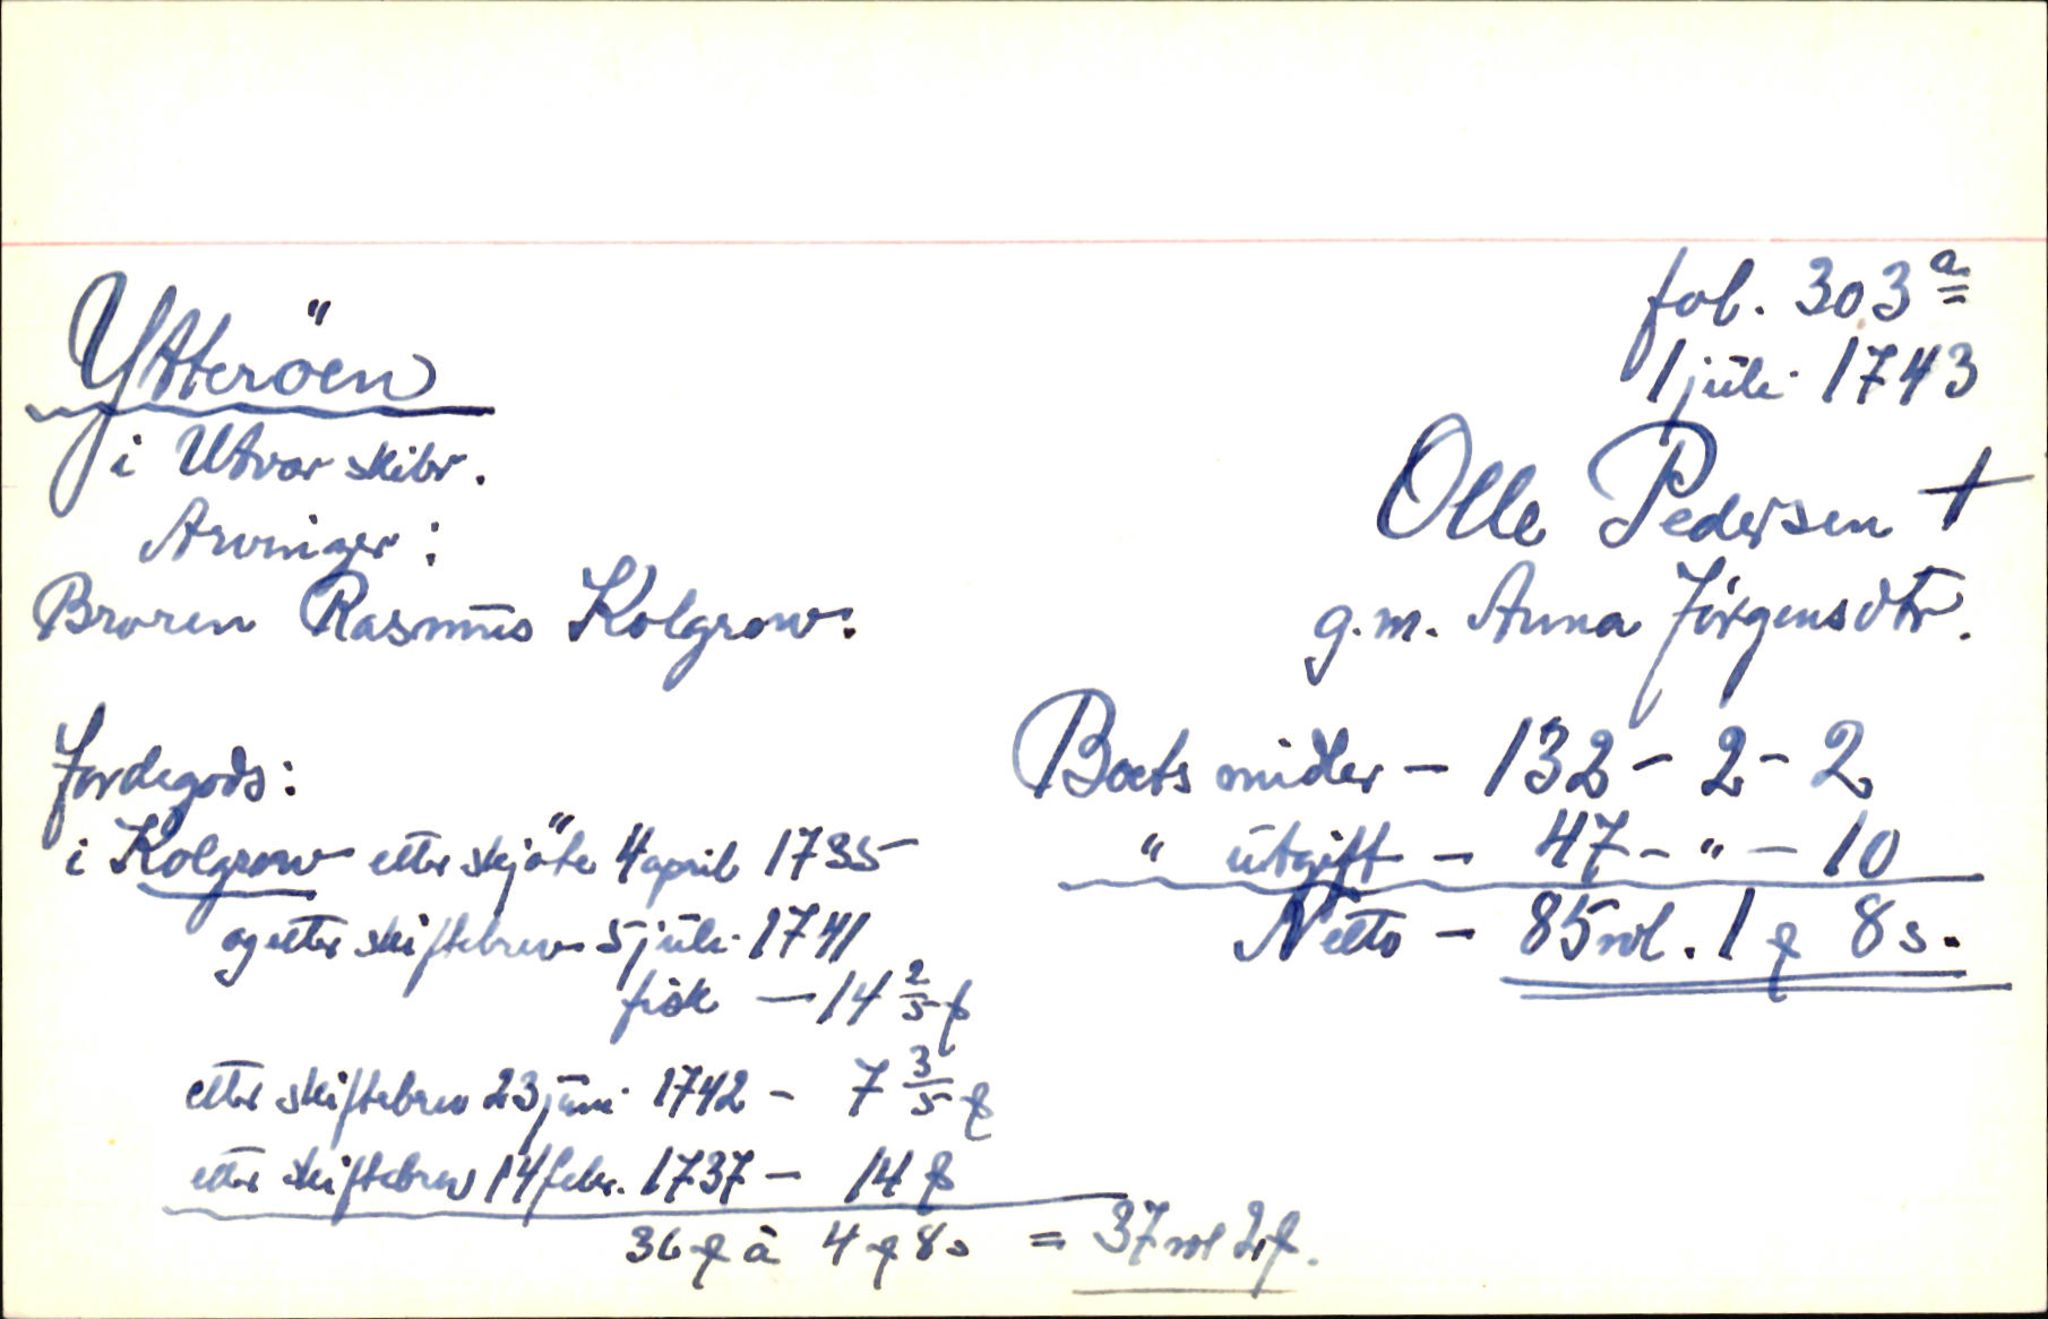 Ytteröen
i Utvær skibr.
Arvinger:
Broren Rasmus Kolgrow.
fol. 303 a
1 juli 1743
Olle Pedersen †
g.m. Anna Jörgensdtr.
Jordegods:
i Kolgrow etter skjöte 4 april 1735
og etter skiftebrev 5 juli 1741
fisk — 14 2/5 f
etter skiftebrev 23 juni 1742 - 7 3/5 f
etter skiftebrev 14 febr. 1737 — 14 f
36 f à 4 f 8 s = 37 rdl 2 f.
Boets midler — 132 - 2 - 2
" utgift — 47 - " - 10
Netto — 85 rdl. 1 f 8 s.